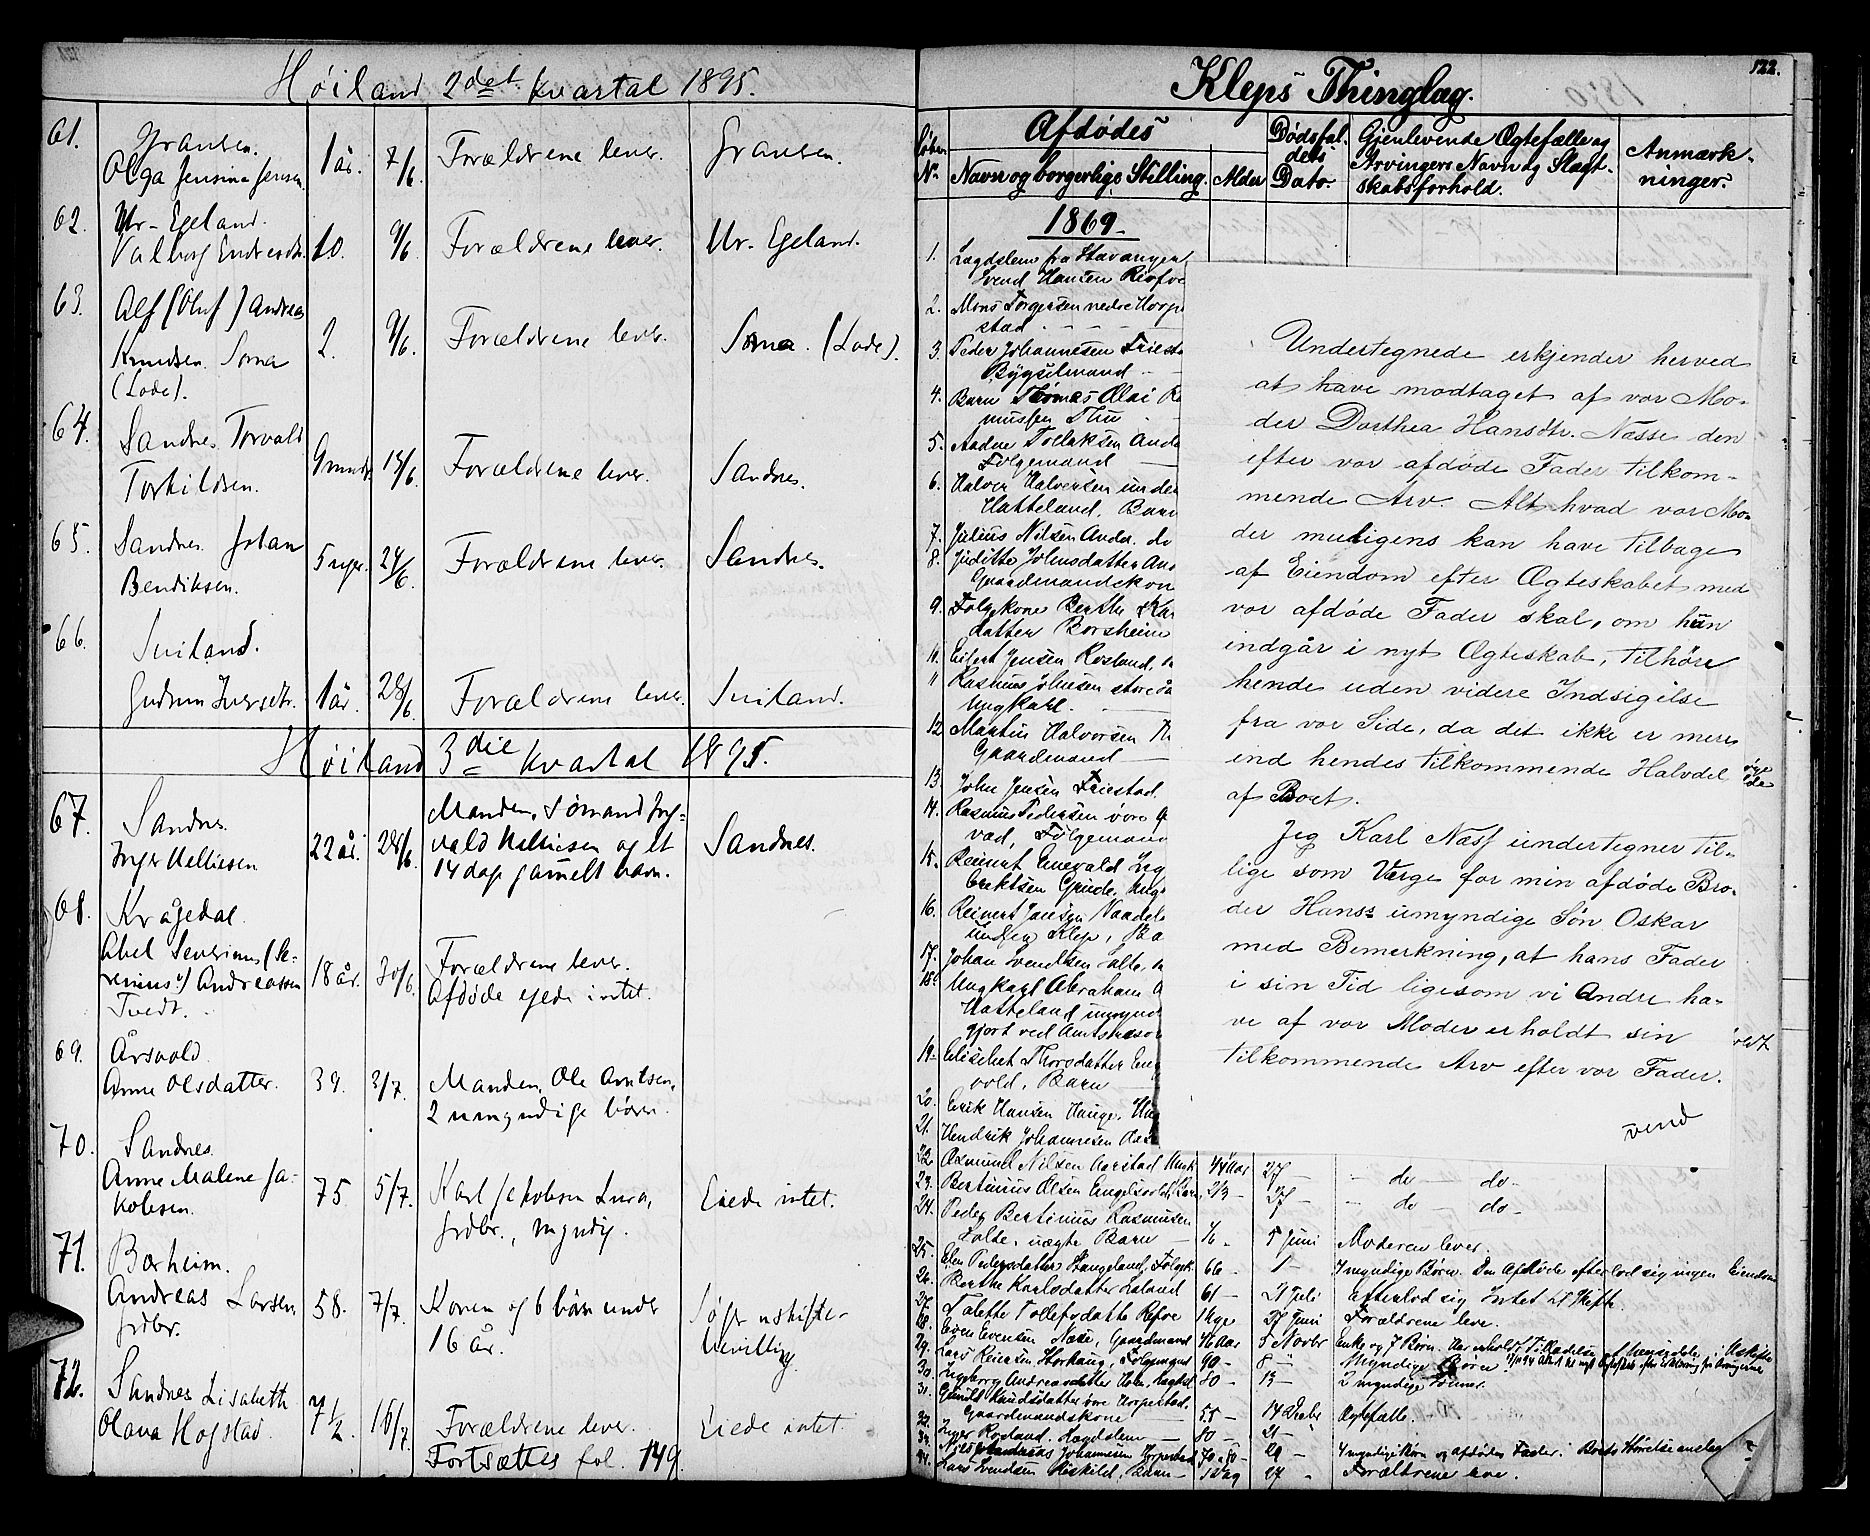 Høiland 2det kvartal 1895.
61. Gransen.
Olga Jensine Jensen. 1 år. 7/6. Forældrene lever. Gransen.
62. Ur-Egeland.
Valborg Endresdtr. 10. 9/6. Forældrene lever. Ur. Egeland.
63. Alf (Oluf) Andreas
Knudsen Soma 2. 9/6. Forældrene lever. Soma. (Lode).
(Lode).
64. Sandnes. Torvald
Torkildsen. 9 mndr 14/6. Forældrene lever. Sandnes.
65. Sandnes. Johan
Bendiksen. 5 uger. 24/6. Forældrene lever. Sandnes.
66.
Gudrun Iversdtr. 1 år. 28/6. Forældrene lever.
Høiland 3die kvartal 1895.
67. Sandnes.
Inger Nelliesen 22 år. 28/6.
Manden, Sømand Ing-
vald Nelliesen og et
14 dage gamelt barn.
Sandnes.
68. Kragedal.
Abel Severinus (Se-
renius?) Andreassen
Tvedt. 18 år. 30/6.
Forældrene lever.
Afdøde ejede intet.
69. Årsvold
Anne Olsdatter. 39. 3/7. Manden, Ole Arntsen,
2 umyndige børn.
70. Sandnes.
Anne Malene Ja-
kobsen. 75 5/7. Karl Jakobsen Lura,
grdbr., myndig. Eiede intet.
71. Bærheim.
Andreas Larsen 58. 7/7. Konen og 6 børn under
grdbr. 16 år.
Søger uskifte-
bevilling.
72. Sandnes Lisabeth
Olava Hofstad. 7 1/2 16/7. Forældrene lever. Eiede intet.
Fortsættes fol. 149.
122.
Kleps Thinglag.
Løbe N°. Afdødes
Navn og borgerlige Stilling. Alder
Dødsfal-
dets
Dato.
Gjenlevende Ægtefælle og
Arvingers Navn og Slægt-
skabsforhold.
Anmærk-
ninger.
1869
1. Lægdslem fra Stavanger
Svend Hansen
2. Mons Torgersen nedre Horpe
stad
3. Peder Johannesen Friesta
Bygselmand
4. Barn Thomas Olai Ra
mussen Thu
5. Aadne Tollaksen Anda
Følgemand
6. Halvor Halvorsen under
Hatteland. Barn
7. Julius Nilsen Anda. do
8. Juditte Johnsdatter An
Gaardmandskone
9. Følgekone Berthe Kar
datter Borsheim
10. Eilert Jensen Rosland,
11 Rasmus Johnsen store
Ungkarl.
12 Martin Halvorsen
Gaardmand
13. John Jensen Friestad.
14. Rasmus Pedersen øvre
vad, Følgemand
15. Reinert Enevald
Erektsen Grude, Ung
16. Reinert Jansen
Klep, Ba
17. Johan Svendsen Salte,
18. Ungkarl Abraham
Hatteland umynd
gjort ved
19. Elisabet Thorsdatter Eng
vold, Barn
20. Erik Hansen Hauge, Ung
21. Hendrik Johannesen
22. Osmund Nilsen Aarstad Ungk. 44 Aar 27 — do — do —
23. Bertinius Olsen Engelsvold, Barn, 2/3 — 27 — do — do —
24. Peder Bertinius Rasmussen
Salte, uægte Barn — 5 Juni Moderen lever.
25. Eben Pedersdatter Stangeland, Følgek. 66 — 1 — 4 myndige Børn. Den Afdøde efterlod sig ingen Eiendom
26. Berthe Karlsdatter 61 — 21 Juli efterlod sig Intet til Skifte
27. Talette Tollefsdatter Refve 1 Uge 27 Juni Forældrene leve.
28. Even Evensen Næse, Gaardmand 46 Aar 5 Novbr Enke og 7 Børn. Har erholdt Tilladelse at hensidde i Uskifte
29. Lars Reiersen Storhaug, Følgemand 90 — 8 — Myndige Børn
30. Ingeborg Andreasdatter 80 — 13 — 2 myndige Sønner.
31. Gunild Knudsdatter øvre Horpestad,
Gaardmandskone 55 — 14 Decbr Ægtefælle.
32. Inger Rosland. Lægdslem 80 — 21 —
33. Andreas Johannesen Horpestad 70-80 — 29 —
34. Lars Svendsen Riskild, Barn — 1 Dag 27 — Forældrene leve.
Undertegnede erkjender herved
at have modtaget af vor Mo-
der Dorthea Hansdtr. Næsse den
efter vor afdøde Fader tilkom-
mende Arv. Alt hvad vor Mo-
der muligens kan have tilbage
af Eiendom efter Ægteskabet med
vor afdøde Fader skal, om hun
indgår i nyt Ægteskab, tilhøre
hende uden videre Indsigelse
fra vor Side, da det ikke er mere
end hendes tilkommende Halvdel
af Boet.
Jeg Karl Næss undertegner til-
lige som Værge for min afdøde Bro-
der Hans's umyndige Søn Oskar
med Bemerkning, at hans Fader
i sin Tid ligesom vi Andre ha-
ve af vor Moder erholdt sin
tilkommende Arv efter vor Fader.
vend